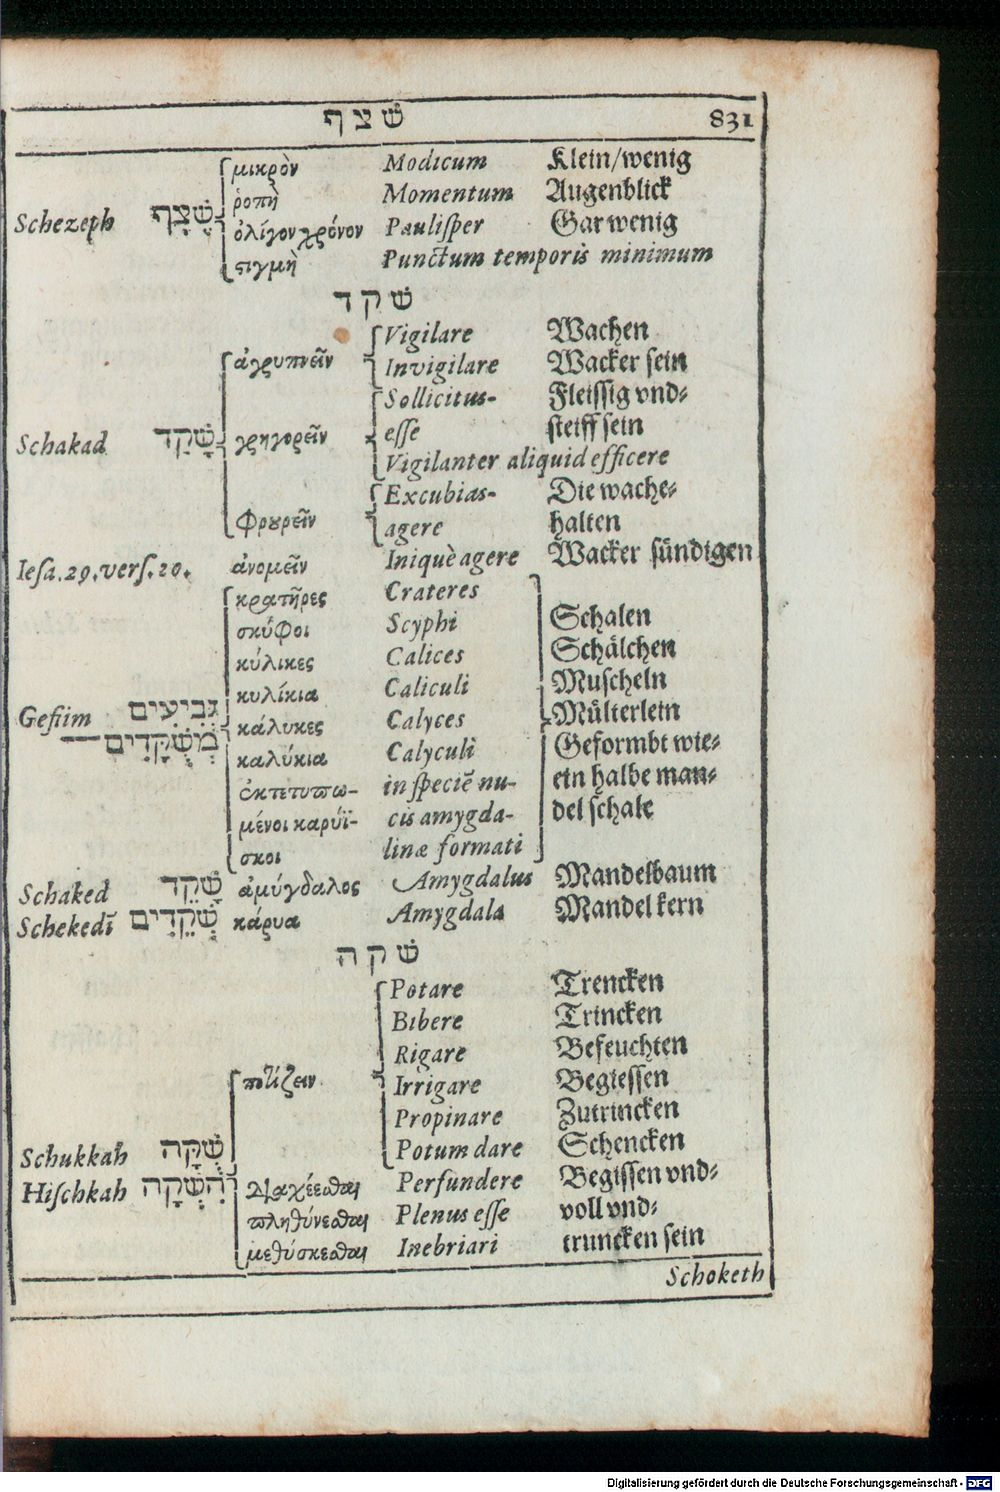 שׁצף 831
μικρὸν Modicum Klein/wenig
ῥοπὴ Momentum Augenblick
Schezeph שֶׁצֶף ὀλίγον χρόνον Pauliſper Gar wenig
ϛιγμὴ Punctum temporis minimum
שׁקד
Vigilare Wachen
ἀγρυπνεῖν Invigilare Wacker ſein
Sollicitus- Fleiſſig vnd⸗
Schakad שָׁקַד γρηγορεῖν eſſe ſteiff ſein
Vigilanter aliquid efficere
Excubias- Die wache⸗
φρουρεῖν agere halten
Ieſa.29.verſ.20. ἀνομεῖν Iniquè agere Wacker ſündigen
κρατῆρες Crateres
σκύφοι Scyphi Schalen
κύλικες Calices Schälchen
κυλίκια Caliculi Muſcheln
Gefiim גְּבִיעִים κάλυκες Calyces Mülterlein
מְשֻׁקָּדִים καλύκια Calyculi Geformbt wie⸗
ἐκτετυπω- in ſpeciē nu- ein halbe man⸗
μένοι καρυΐ- cis amygda- del ſchale
σκοι linæ formati
Schaked שָׁקֵד ἀμύγδαλος Amygdalus Mandelbaum
Schekedī שְׁקֵדִים κάρυα Amygdala Mandel kern
שׁקה
Potare Trencken
Bibere Trincken
Rigare Befeuchten
ποτίζειν Irrigare Begieſſen
Propinare Zutrincken
Schukkah שֻׁקָּה Potum dare Schencken
Hiſchkah הִשְׁקָה διαχέεσθαι Perfundere Begiſſen vnd⸗
πληθύνεσθαι Plenus eſſe voll vnd⸗
μεθύσκεσθαι Inebriari truncken ſein
Schoketh
Digitalisierung gefördert durch die Deutsche Forschungsgemeinschaft - DFG